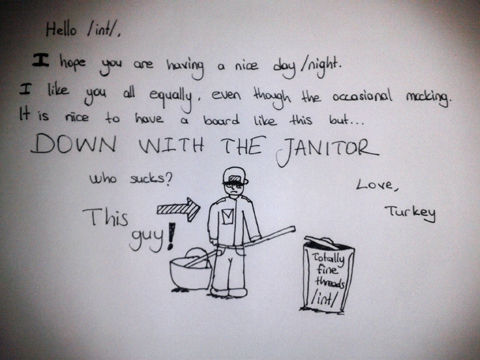 Hello /int/,
I hope you are having a nice day/night.
I like you all equally, even though the occasional mocking.
It is nice to have a board like this but...
DOWN WITH THE JANITOR
who sucks?
This guy!
Love,
Turkey
M
Totally
fine
threads
/int/